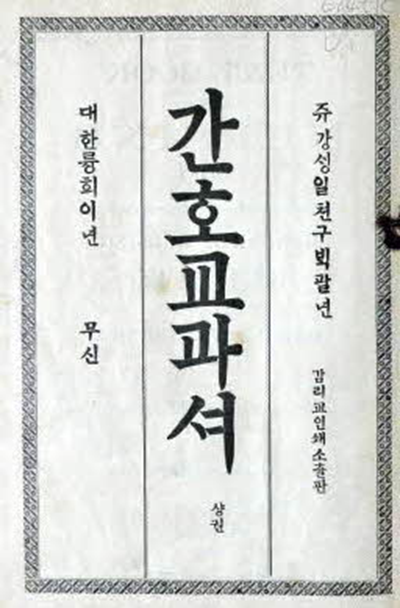 쥬강싱일쳔구빅팔년
감리교인쇄소츌판
간호교과셔
샹권
대한륭희이년
무신